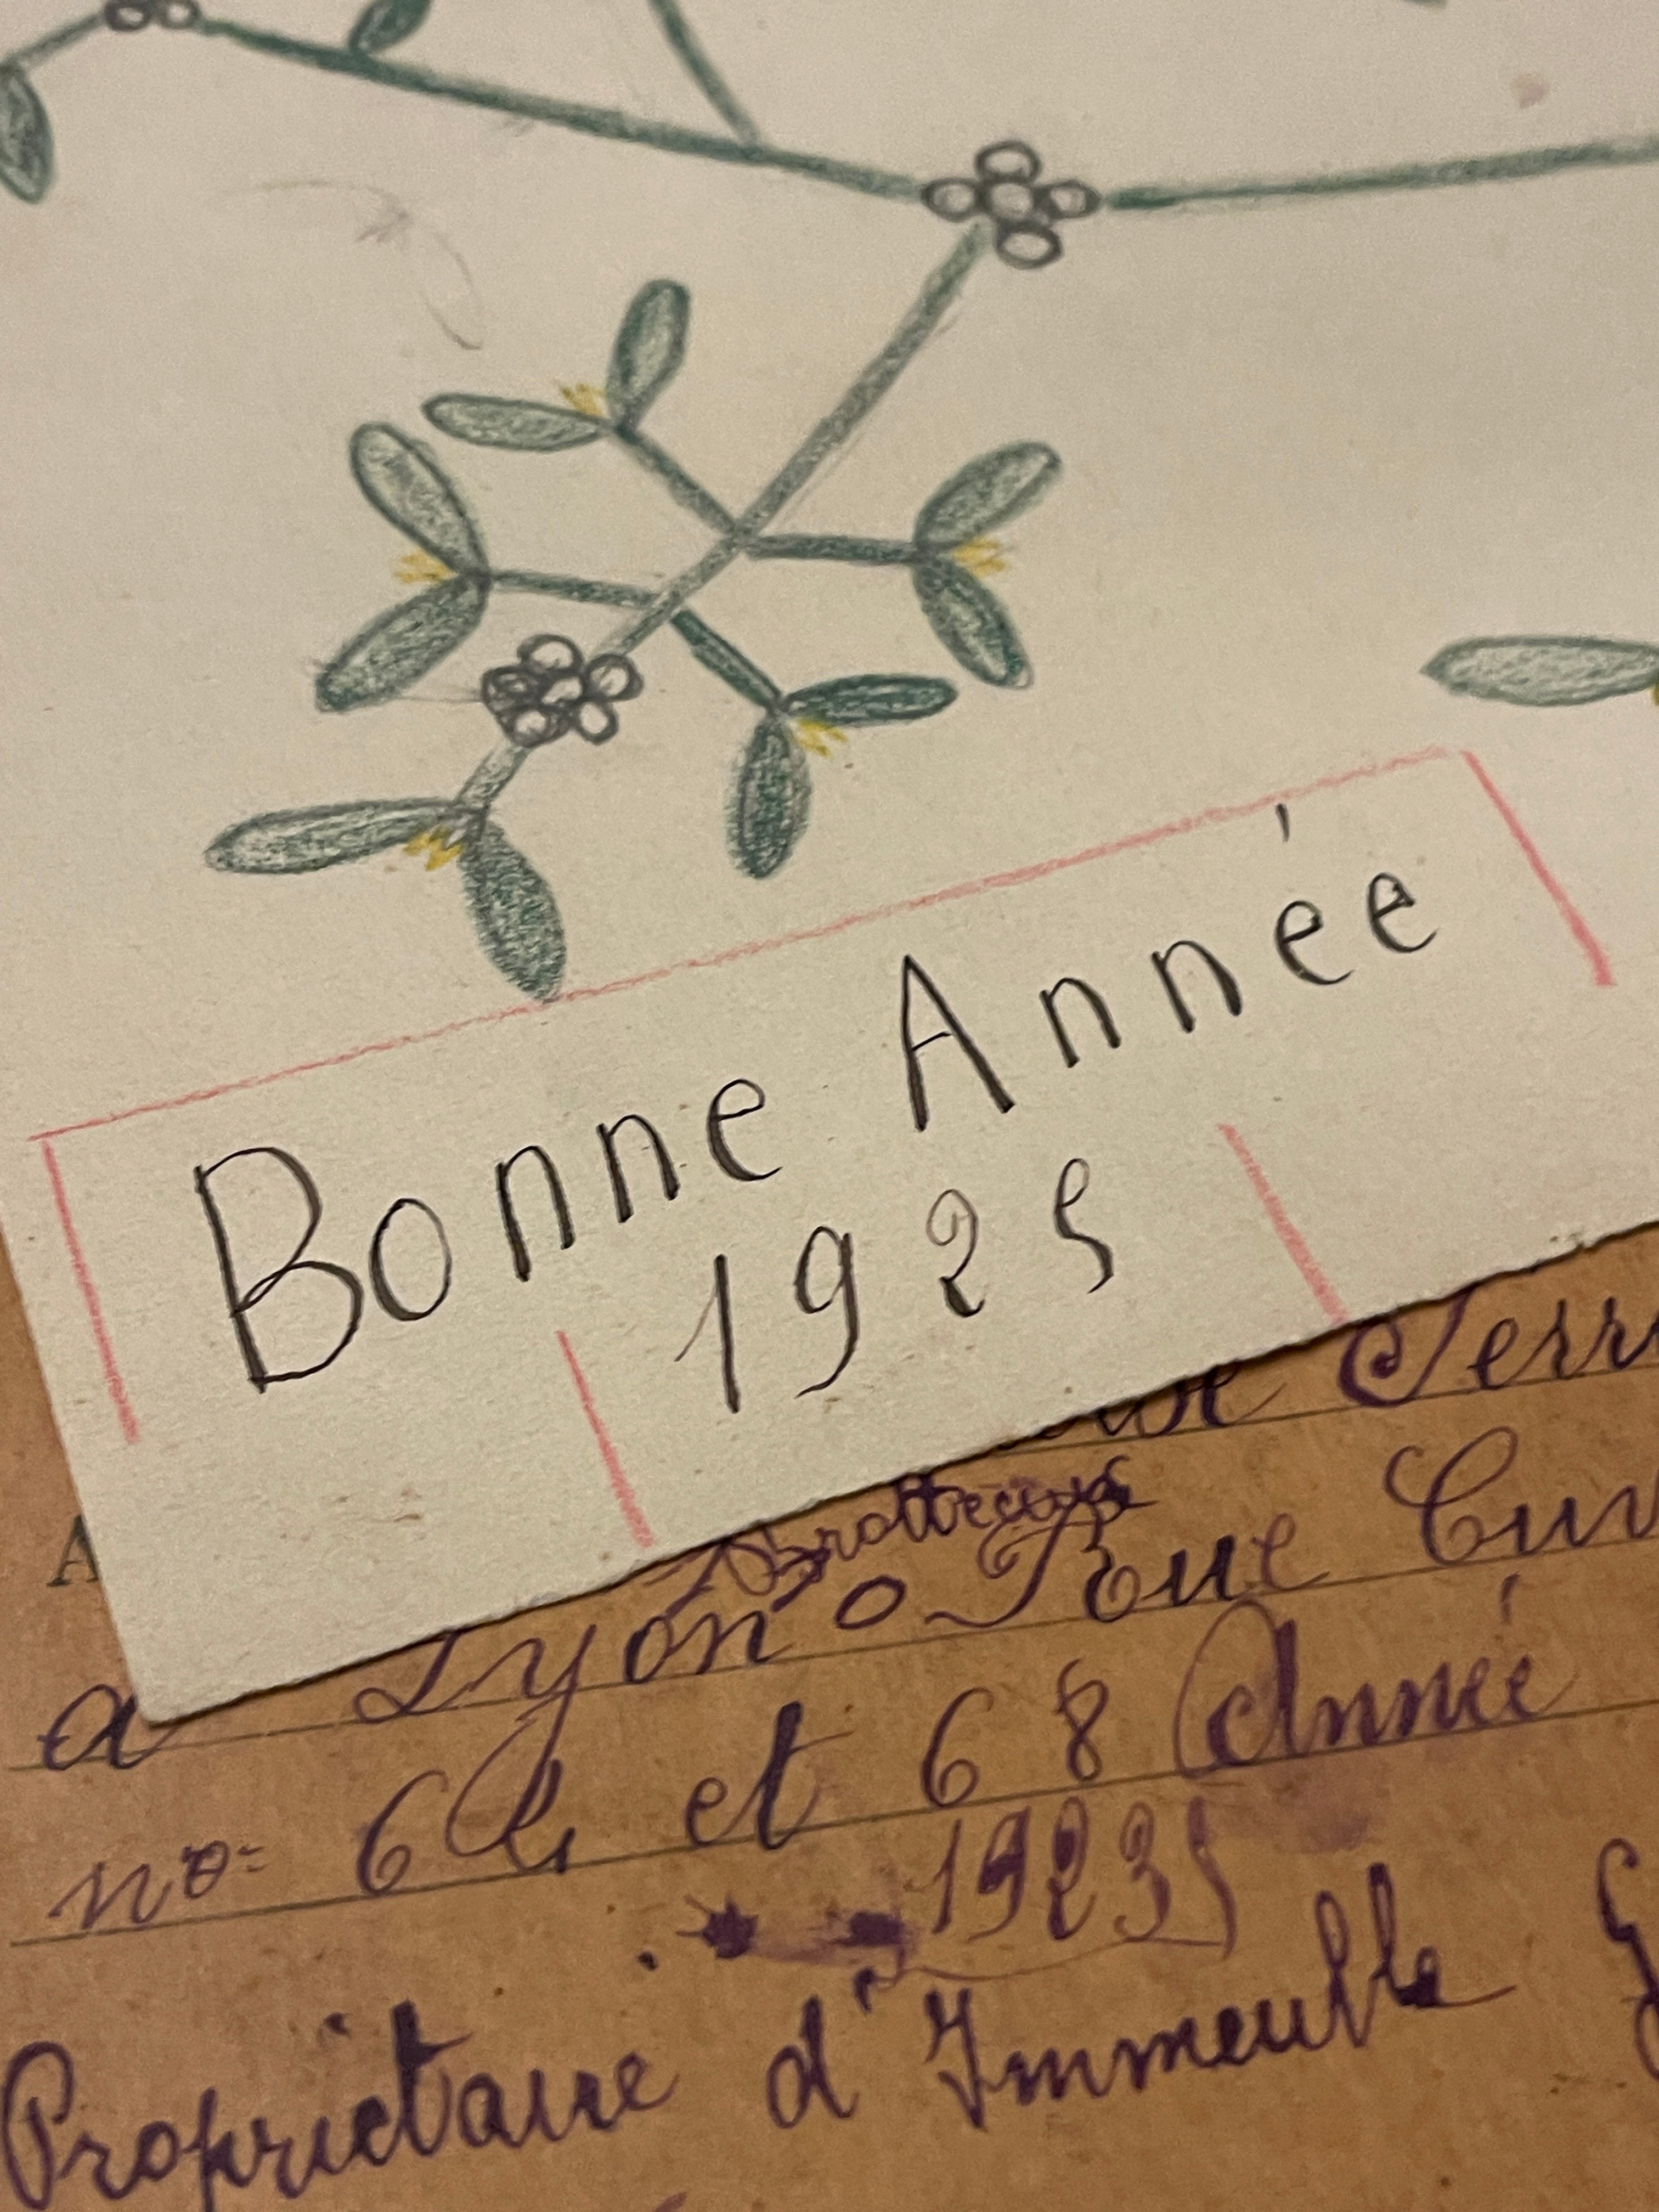 Bonne Année
1925
A
Brotteaux
a Lyon Rue
no= 64 et 68 Année
1925
Propriétaire d'Immeuble